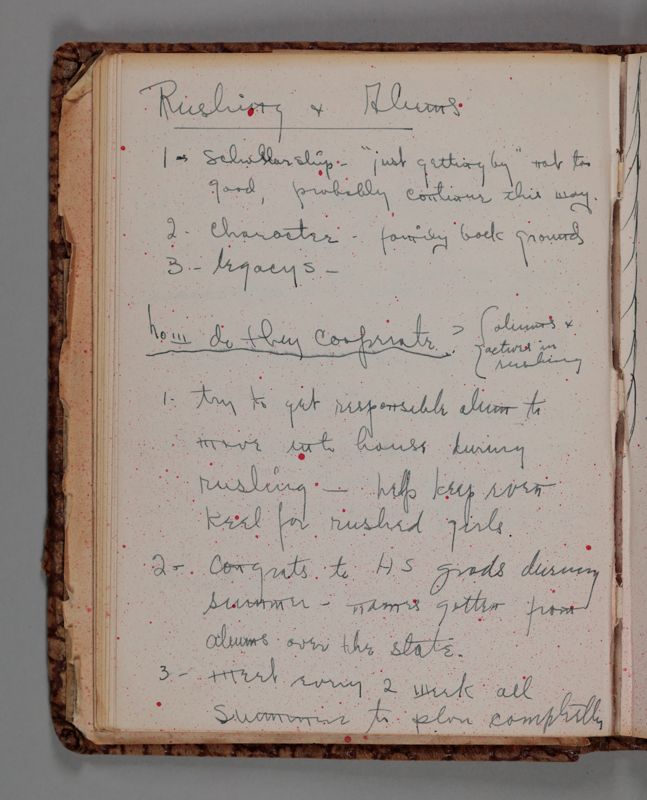 Rushing & Alums
1 - Scholarship - "just getting by" not too
good, probably continue this way.
2 - Character - family back grounds
3 - legacys -
how do they cooperate ? { alums &
actives in
rushing
1 - try to get responsible alum to
move into house during
rushing - help keep even
keel for rushed girls
2 - Congrats to HS grads during
summer - names gotten from
alums over the state.
3 - meet every 2 week all
summer to plan completely